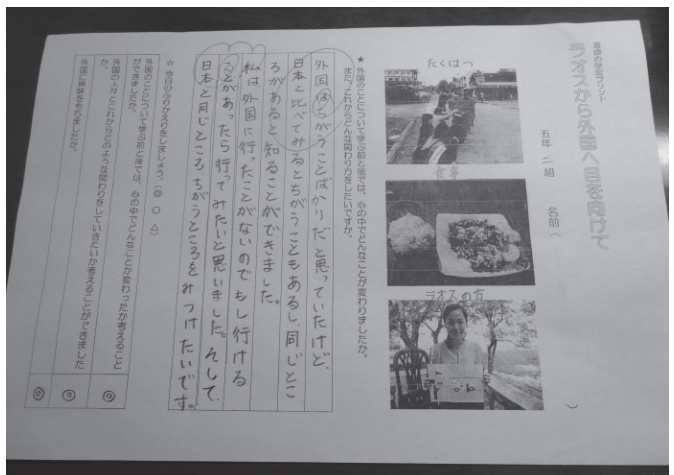 道徳の学習プリント
ラオスから外国へ目を向けて
五年 二組 名前（ ）
たくはつ
食事
ラオスの方
★外国のことについて学ぶ前と後では、心の中でどんなことが変わりましたか。
また、これからどんな関わり方をしたいですか。
外国はちがうことばかりだと思っていたけど、
日本と比べてみるとちがうこともあるし、同じとこ
ろがあると知ることができました。
私は外国に行ったことがないのでもし行ける
ことがあったら行ってみたいと思いました。そして、
日本と同じところちがうところをみつけたいです。
☆今日のふりかえりをしましょう。（◎ ○ △）
外国のことについて学ぶ前と後では、心の中でどんなことが変わったか考えること
ができましたか。
◎
外国の人々とこれからどのような関わりをしていきたいか考えることができました
か。
◎
外国に興味をもちましたか。
◎